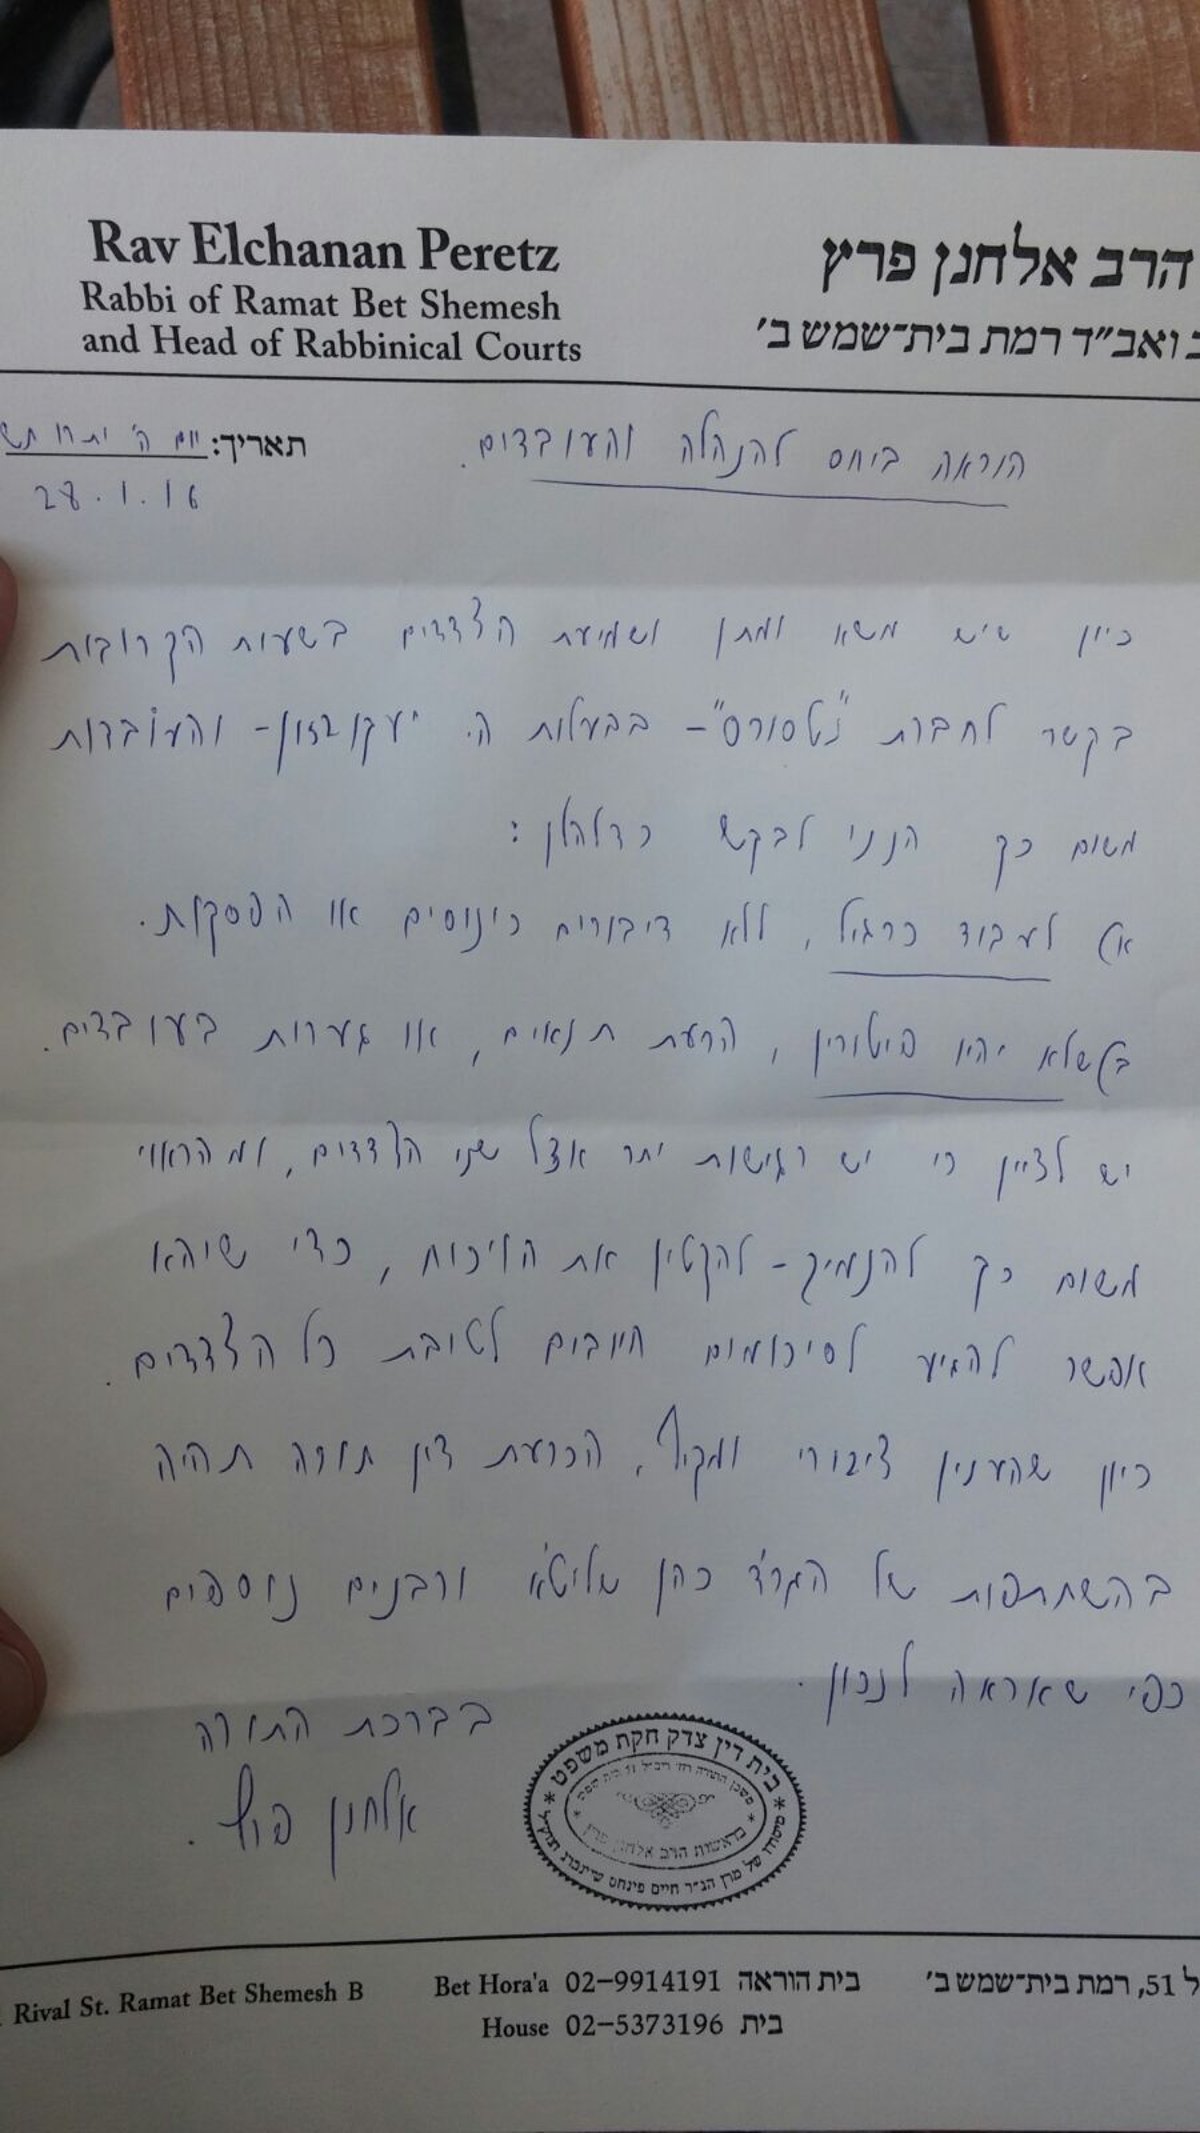 Rav Elchanan Peretz
Rabbi of Ramat Bet Shemesh
and Head of Rabbinical Courts
הרב אלחנן פרץ
ואב״ד רמת בית־שמש ב׳
תאריך: יום ה' יתרו
28.1.16
הוראה ביחס להנהלה והעובדים.
כיון שיש משא ומתן ושמיעת הצדדים בשעות הקרובות
בקשר לחברת "נטסורס" - בבעלות ה. יעקובזון - והעובדות
משום כך הנני לבקש כדלהלן:
א) לעבוד כרגיל, ללא דיבורים כינוסים או הפסקות.
ב) שלא יהיו פיטורין, הרעת תנאים, או גערות בעובדים.
יש לציין כי יש רגישות יתר אצל שני הצדדים, ומהראוי
משום כך להנמיך - להקטין את הויכוח, כדי שיהא
אפשר להגיע לסיכומים חיובים לטובת כל הצדדים.
כיון שהענין ציבורי ומקיף, הכרעת דין תורה תהיה
בהשתתפות של הגר"ד כהן שליט"א ורבנים נוספים
כפי שאראה לנכון.
בברכת התורה
אלחנן פרץ.
* בית דין צדק חקת משפט *
בראשות הרב אלחנן פרץ
מיסודו של מרן הג״ר חיים פינחס שיינברג זצוק״ל
Rival St. Ramat Bet Shemesh B
Bet Hora'a 02-9914191 בית הוראה
House 02-5373196 בית
51, רמת בית־שמש ב׳